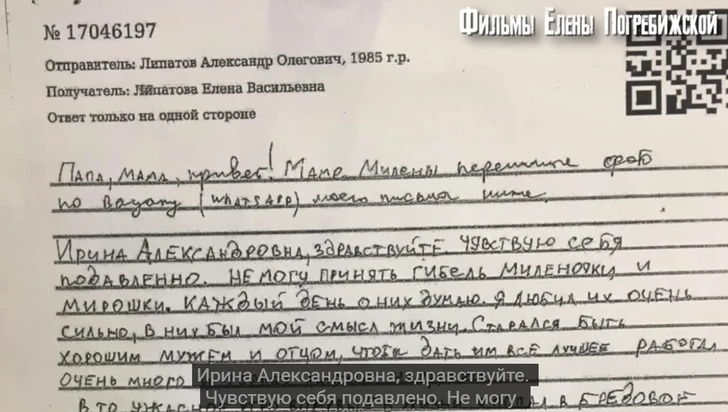 Фильмы Елены Погребижской
№ 17046197
Отправитель: Липатов Александр Олегович, 1985 г.р.
Получатель: Липатова Елена Васильевна
Ответ только на одной стороне
Папа, мама, привет! Маме Милены перешлите фото
по вацапу (WHATSAPP) моего письма ниже.
Ирина Александровна, здравствуйте. Чувствую себя
подавленно. Не могу принять гибель Миленочки и
Мирошки. Каждый день о них думаю. Я любил их очень
сильно, в них был мой смысл жизни. Старался быть
хорошим мужем и отцом, чтобы дать им всё лучшее работал
очень много
Ирина Александровна, здравствуйте.
Чувствую себя подавлено. Не могу
В то
в бредовое